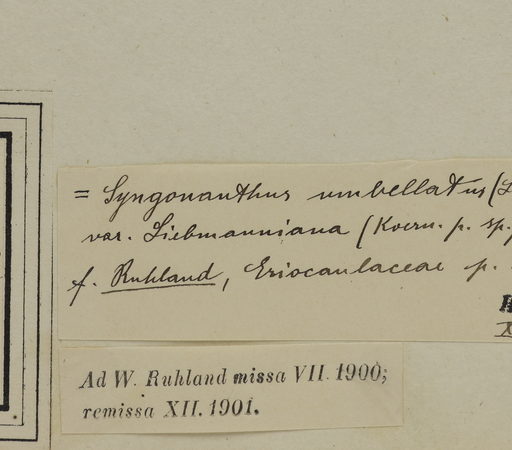 = Syngonanthus umbellatus (
var. Liebmanniana (Koern. p. sp.
f. Ruhland, Eriocaulaceae p.
Ad W. Ruhland missa VII. 1900;
remissa XII. 1901.